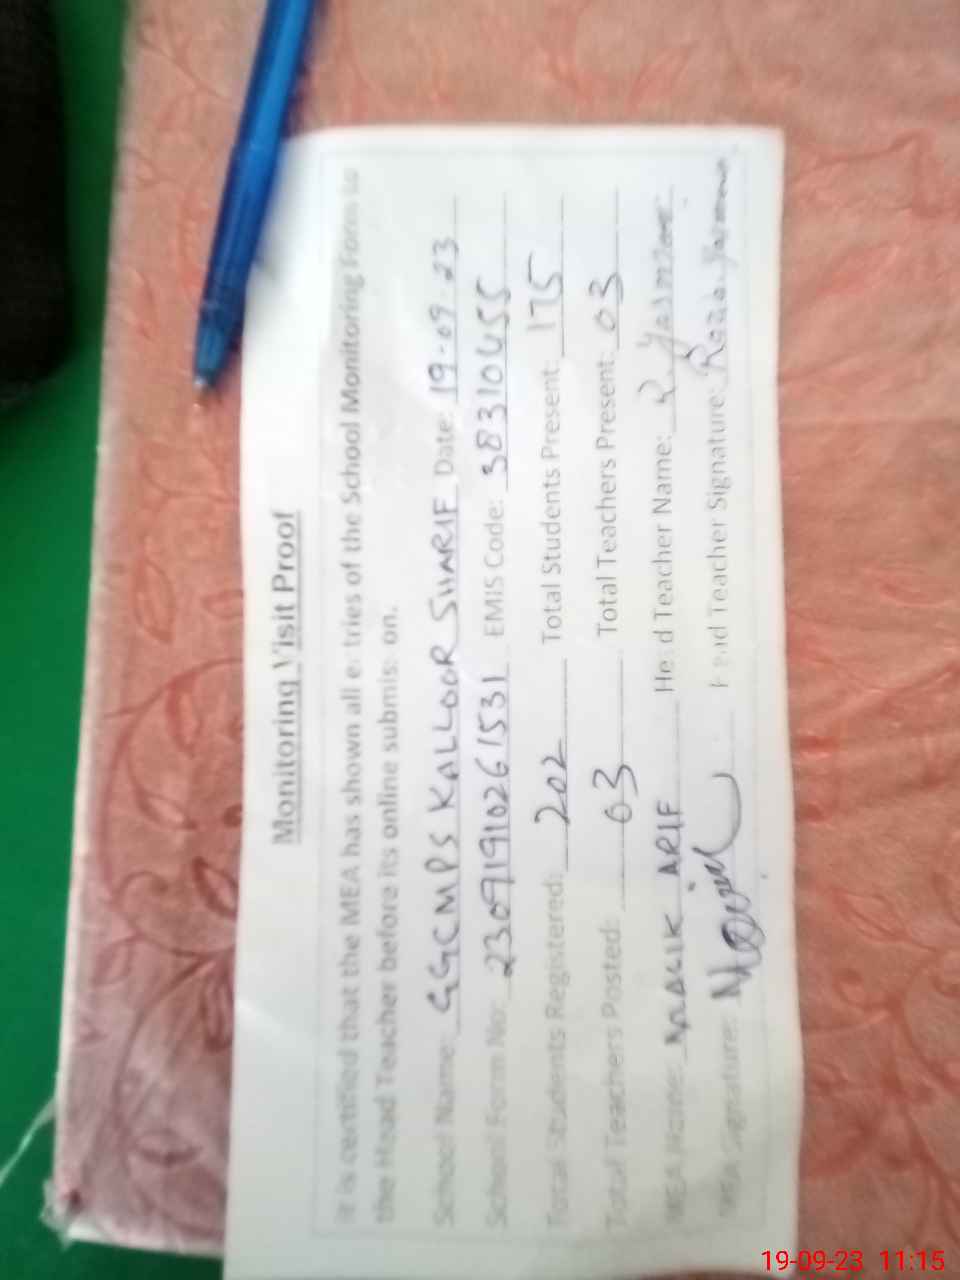 Monitoring Visit Proof
It is certified that the MEA has shown all e tries of the School Monitoring Form to
the Head Teacher before its online submis on.
School Name: GGCMPS KALLOOR SHARIF Date: 19-09-23
School Form No: 23091910261531 EMIS Code: 38310455
Total Students Registered: 202 Total Students Present: 175
Total Teachers Posted: 03 Total Teachers Present: 03
MEA Name: MALIK ARIF Head Teacher Name: R Yasmeen
MEA Signature: Head Teacher Signature:
19-09-23 11:15